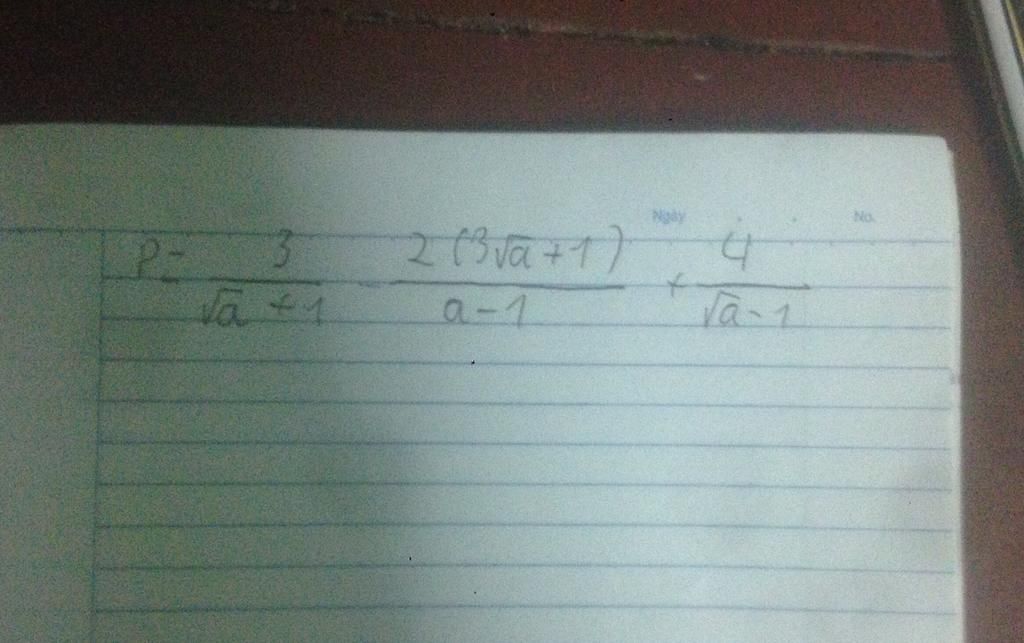 Ngày . . No.
P = 3/(√a + 1) - 2(3√a + 1)/(a - 1) + 4/(√a - 1)